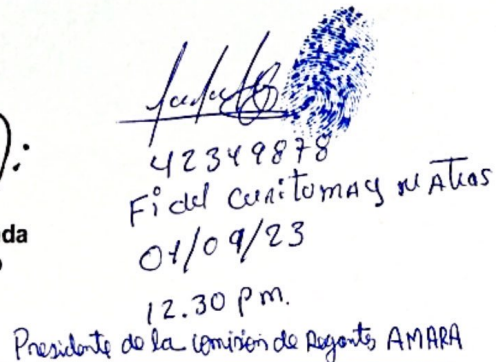 42349878
Fidel Curitumay Matias
01/09/23
12.30 pm.
da
Presidente de la comisión de Regantes AMARA